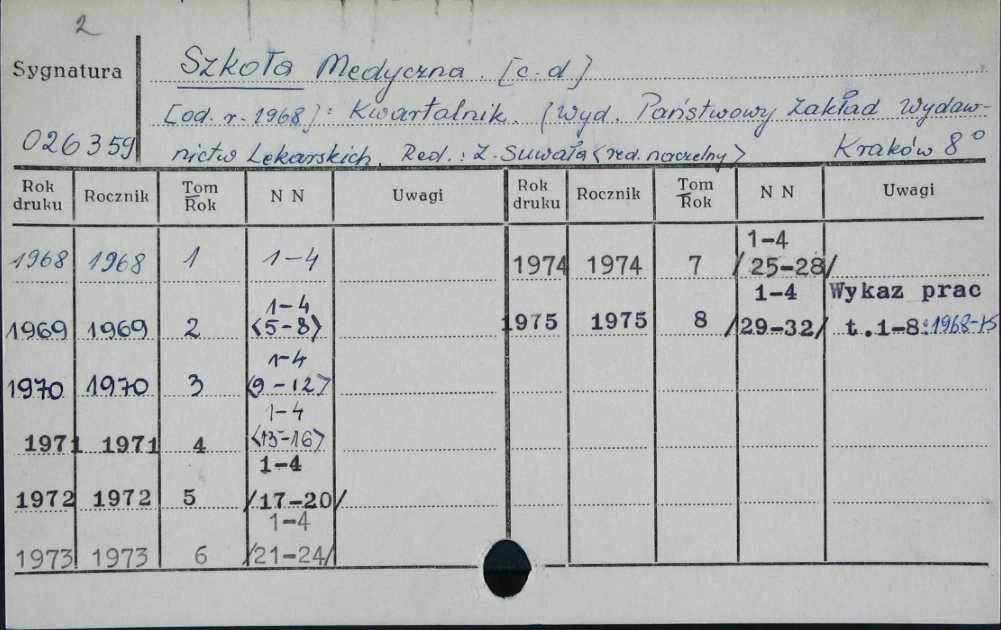 2
Sygnatura Szkoła Medyczna. [c.d]
[od. r. 1968]: Kwartalnik. (Wyd. Państwowy Zakład Wydaw-
026359 nictw Lekarskich. Red.: Z. Suwała <red. naczelny> Kraków 8°
Rok druku Rocznik Tom/Rok N N Uwagi Rok druku Rocznik Tom/Rok N N Uwagi
1968 1968 1 1-4
1974 1974 7 1-4 /25-28/
1969 1969 2 1-4 <5-8>
1975 1975 8 1-4 /29-32/ Wykaz prac t.1-8:1968-75
1970 1970 3 1-4 <9-12>
1971 1971 4 1-4 <13-16>
1972 1972 5 1-4 /17-20/
1973 1973 6 1-4 /21-24/